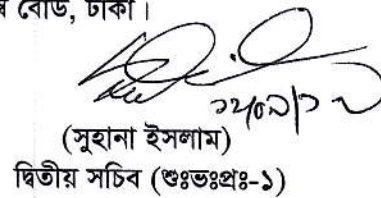 বোর্ড, ঢাকা।
(সুহানা ইসলাম)
দ্বিতীয় সচিব (শুঃভঃপ্রঃ-১)